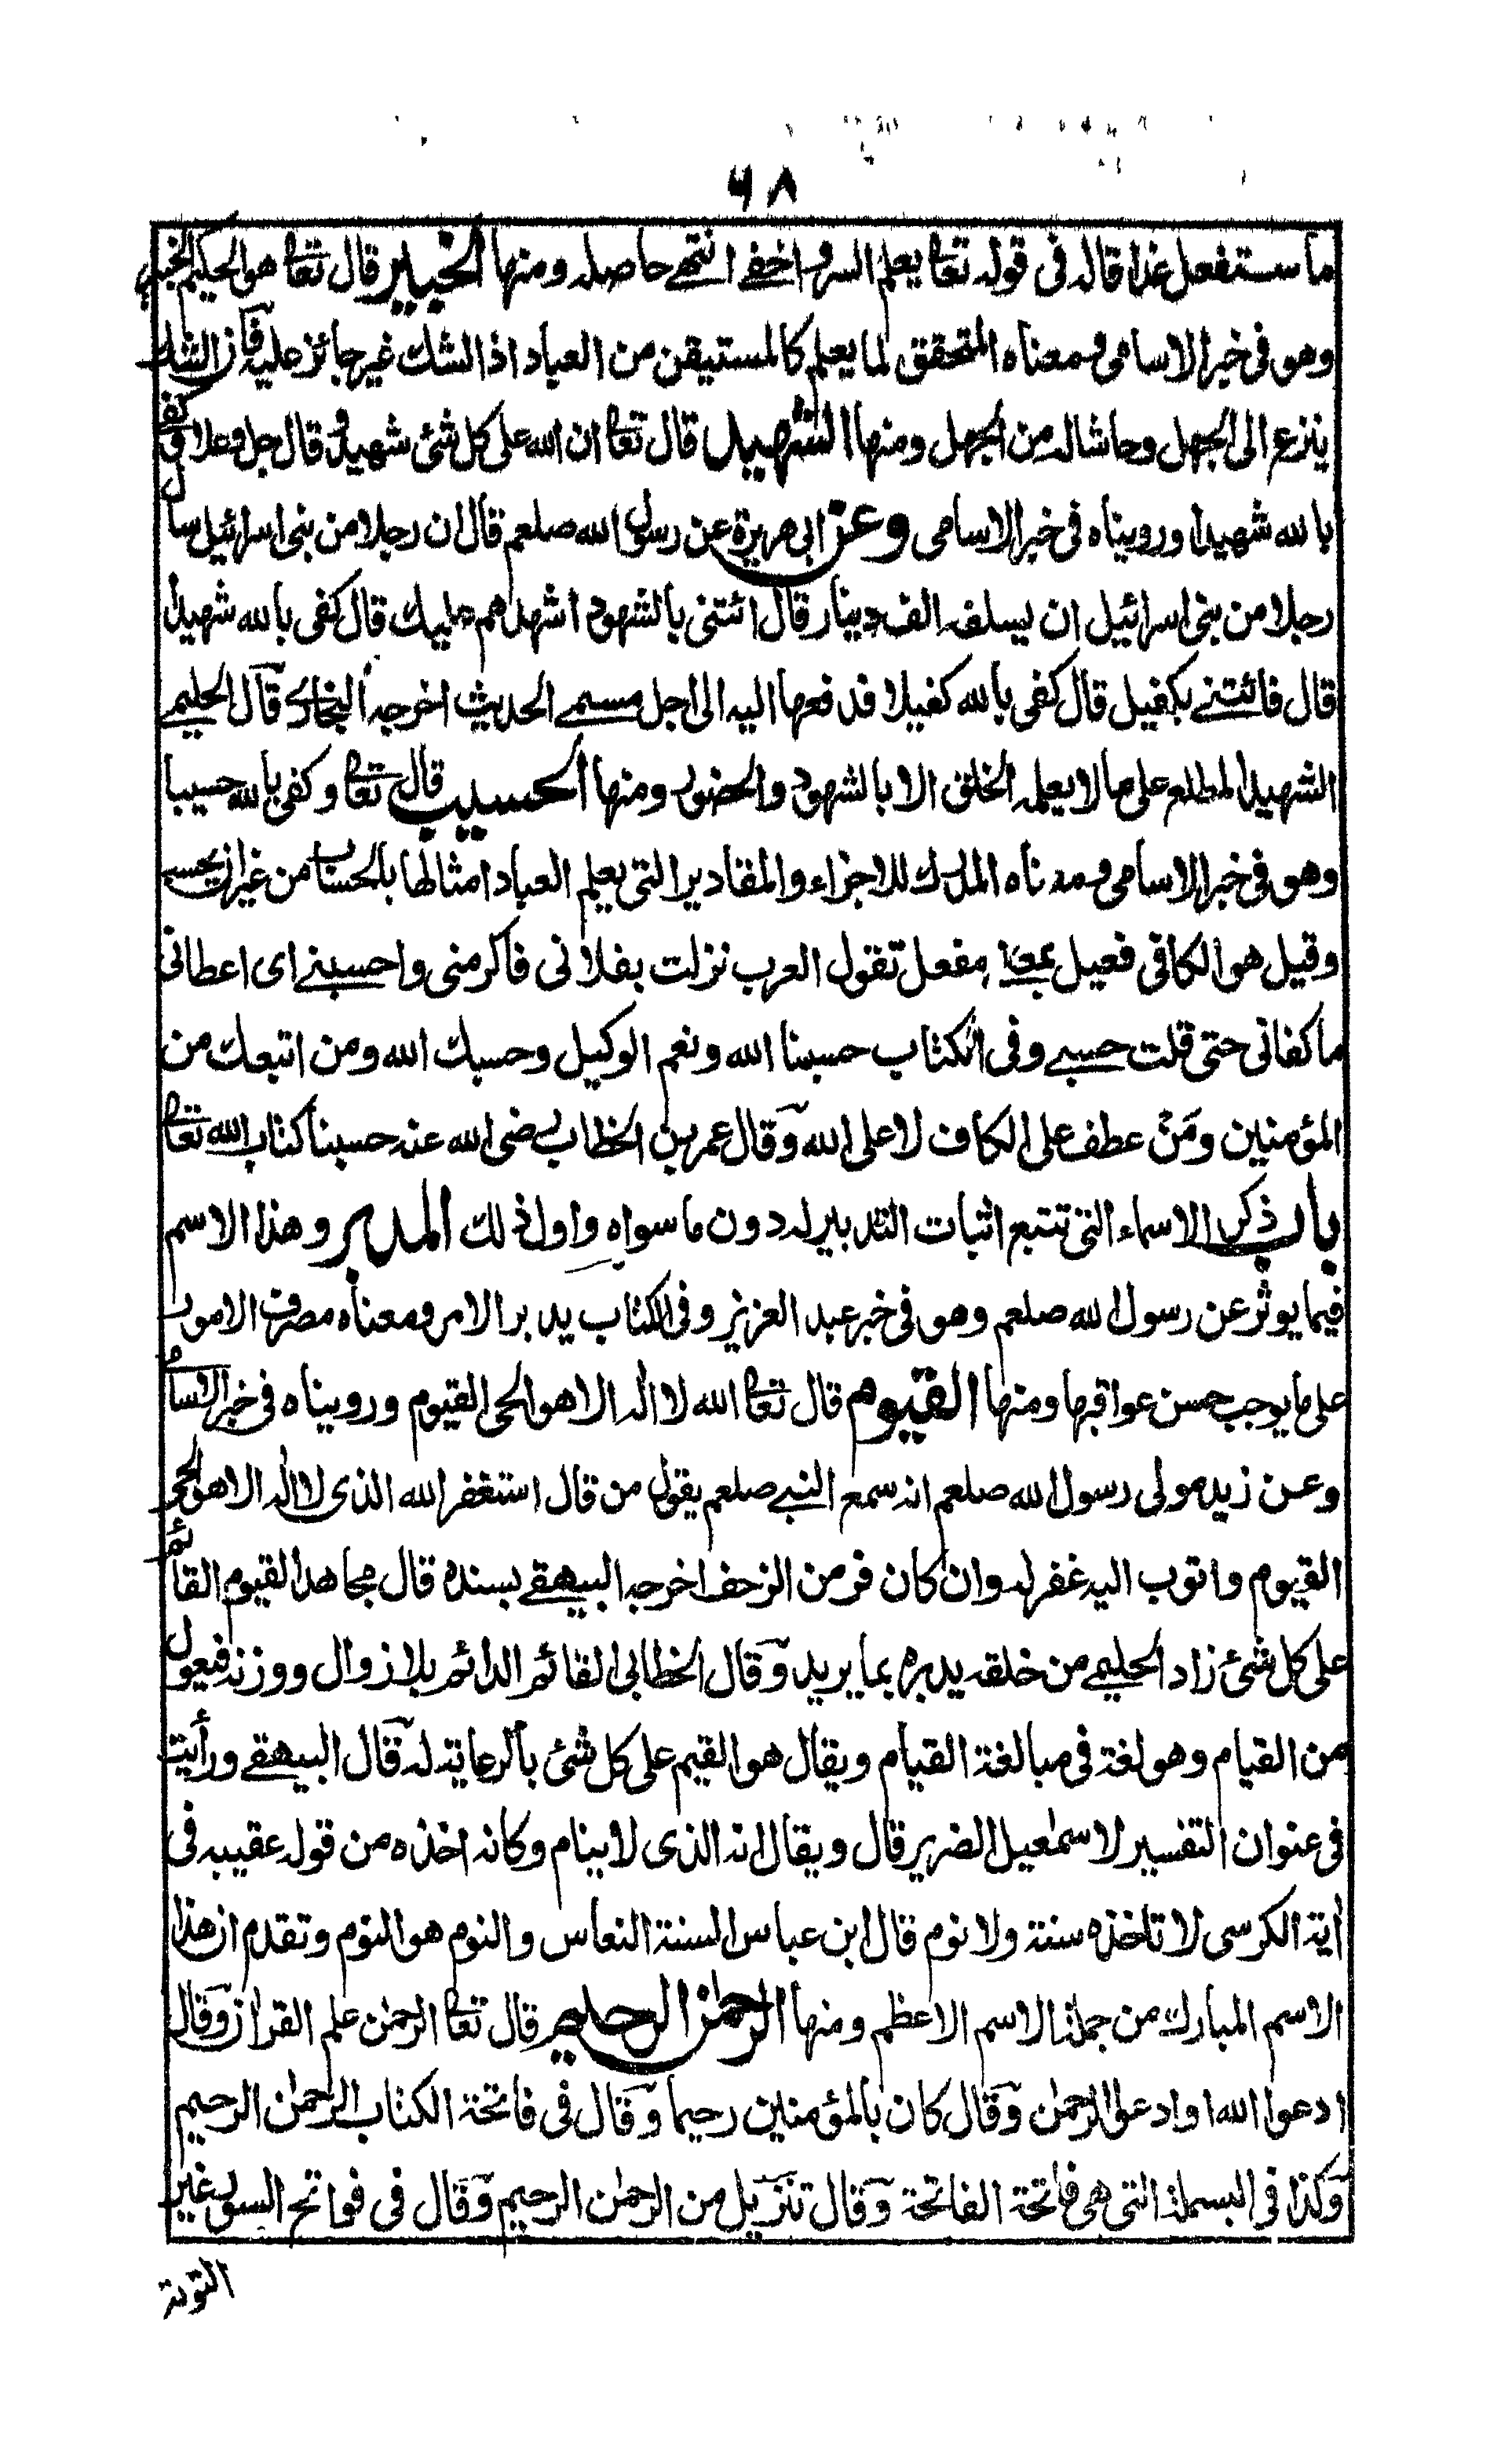 ٦٨
ما ستفعل غدا قاله فى قوله تعا يعلم السر واخفے انتهے حاصله ومنها الخبير قال تعا هو الحكيم الخبير
وهو فى خبر الاسامى ومعناه المتحقق لما يعلم كالمستيقن من العباد اذ الشك غير جائز عليه فان الشك
ينزع الى الجهل وحاشاله من الجهل ومنها الشهيد قال تعا ان الله على كل شئ شهيد وقال جل وعلا وكفى
بالله شهيدا ورويناه فى خبر الاسامى وعن ابى هريرة عن رسول الله صلعم قال ان رجلا من بنى اسرائيل سأل
رجلا من بنى اسرائيل ان يسلفه الف دينار قال ائتنى بالشهود اشهدهم عليك قال كفى بالله شهيدا
قال فائتنے بكفيل قال كفى بالله كفيلا فدفعها اليه الى اجل مسمے الحديث اخرجه البخارى قال الحليمے
الشهيد المطلع على ما لا يعلمه الخلق الا بالشهود والحضور ومنها الحسيب قال تعا وكفى بالله حسيبا
وهو فى خبر الاسامى ومعناه المدرك للاجزاء والمقادير التى يعلم العباد امثالها بالحساب من غير ان يحسب
وقيل هو الكافى فعيل بمعنا مفعل تقول العرب نزلت بفلانى فاكرمنى واحسبنے اى اعطانى
ما كفانى حتى قلت حسبے وفى الكتاب حسبنا الله ونعم الوكيل وحسبك الله ومن اتبعك من
المؤمنين ومَنْ عطف على الكاف لا على الله وقال عمر بن الخطاب رضى الله عنه حسبنا كتاب الله تعا
باب ذكر الاسماء التى تتبع اثبات التدبير له دون ما سواه واول ذلك المدبر وهذا الاسم
فيما يوثر عن رسول الله صلعم وهو فى خبر عبد العزيز وفى الكتاب يدبر الامر ومعناه مصرف الامور
على ما يوجب حسن عواقبها ومنها القيوم قال تعا الله لا اله الا هو الحى القيوم ورويناه فى خبر الاسامى
وعن زيد مولى رسول الله صلعم انه سمع النبے صلعم يقول من قال استغفر الله الذى لا اله الا هو الحى
القيوم واتوب اليه غفر له وان كان فر من الزحف اخرجه البيهقے بسنده قال مجاهد القيوم القائم
على كل شئ زاد الحليمے من خلقه يدبره بما يريد وقال الخطابى القائم الدائم بلا زوال ووزنه فيعول
من القيام وهو لغة فى مبالغة القيام ويقال هو القيم على كل شئ بالرعاية له قال البيهقے ورأيت
فى عنوان التفسير لاسمعيل الضرير قال ويقال انه الذى لا ينام وكانه اخذه من قوله عقيبه فى
أية الكرسى لا تاخذه سنة ولا نوم قال ابن عباس السنة النعاس والنوم هو النوم وتقدم ان هذا
الاسم المبارك من جملة الاسم الاعظم ومنها الرحمن الرحيم قال تعا الرحمن علم القران وقال
ادعوا الله او ادعوا الرحمن وقال كان بالمؤمنين رحيما وقال فى فاتحة الكتاب الرحمن الرحيم
وكذا فى البسملة التى هى فاتحة الفاتحة وقال تنزيل من الرحمن الرحيم وقال فى فواتح السور غير
التوبة